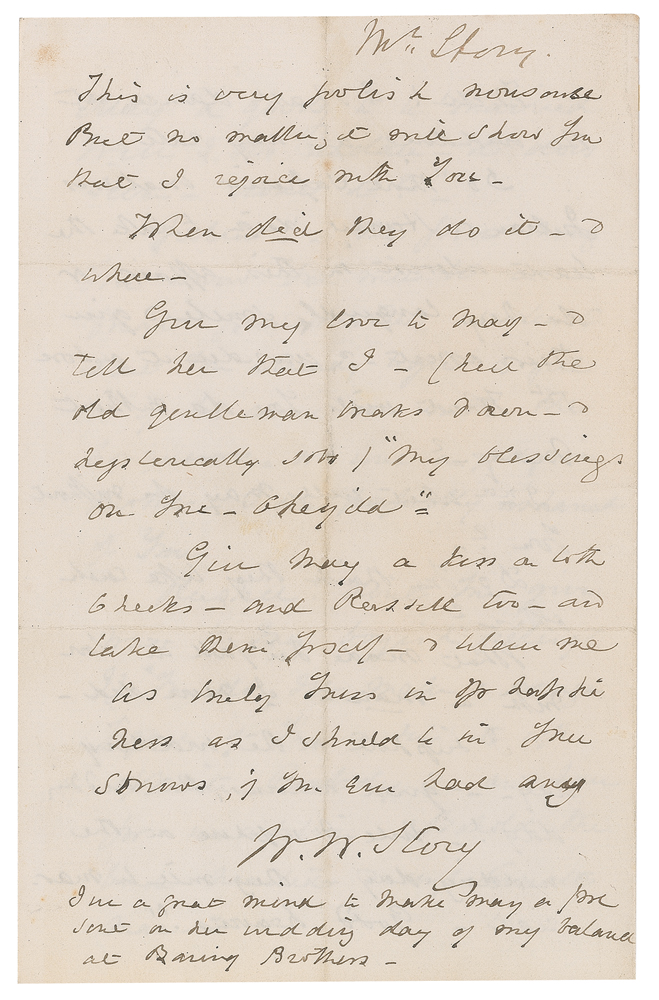 Mr. Story.
This is very foolish nonsense
But no matter, it will show you
that I rejoice with You –
When did they do it – &
where –
Give my love to May – &
tell her that I – (here the
old gentleman breaks down – &
hysterically sobs) "My blessings
on you – Cheyild"
Give May a kiss on both
Cheeks – and Russell too – and
take them yrself – & believe me
as truly yours in yr happi
ness as I should be in your
Sorrows, if you ever had any
W. W. Story
I've a great mind to make May a pre
sent on her wedding day of my balance
at Baring Brothers –